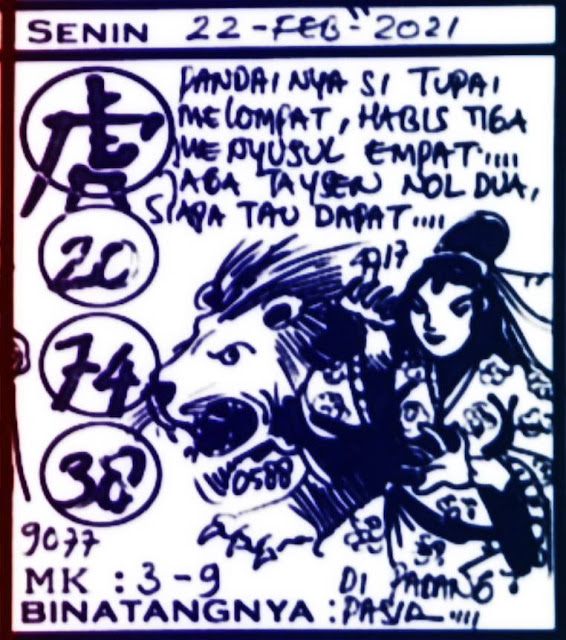 SENIN 22-FEB-2021
PANDAINYA SI TUPAI
MELOMPAT, HABIS TIGA
MENYUSUL EMPAT....
JAGA TAYSEN NOL DUA,
SIAPA TAU DAPAT....
20
74
38
9077
0588
MK : 3-9
BINATANGNYA : DI PADANG
PASIR....